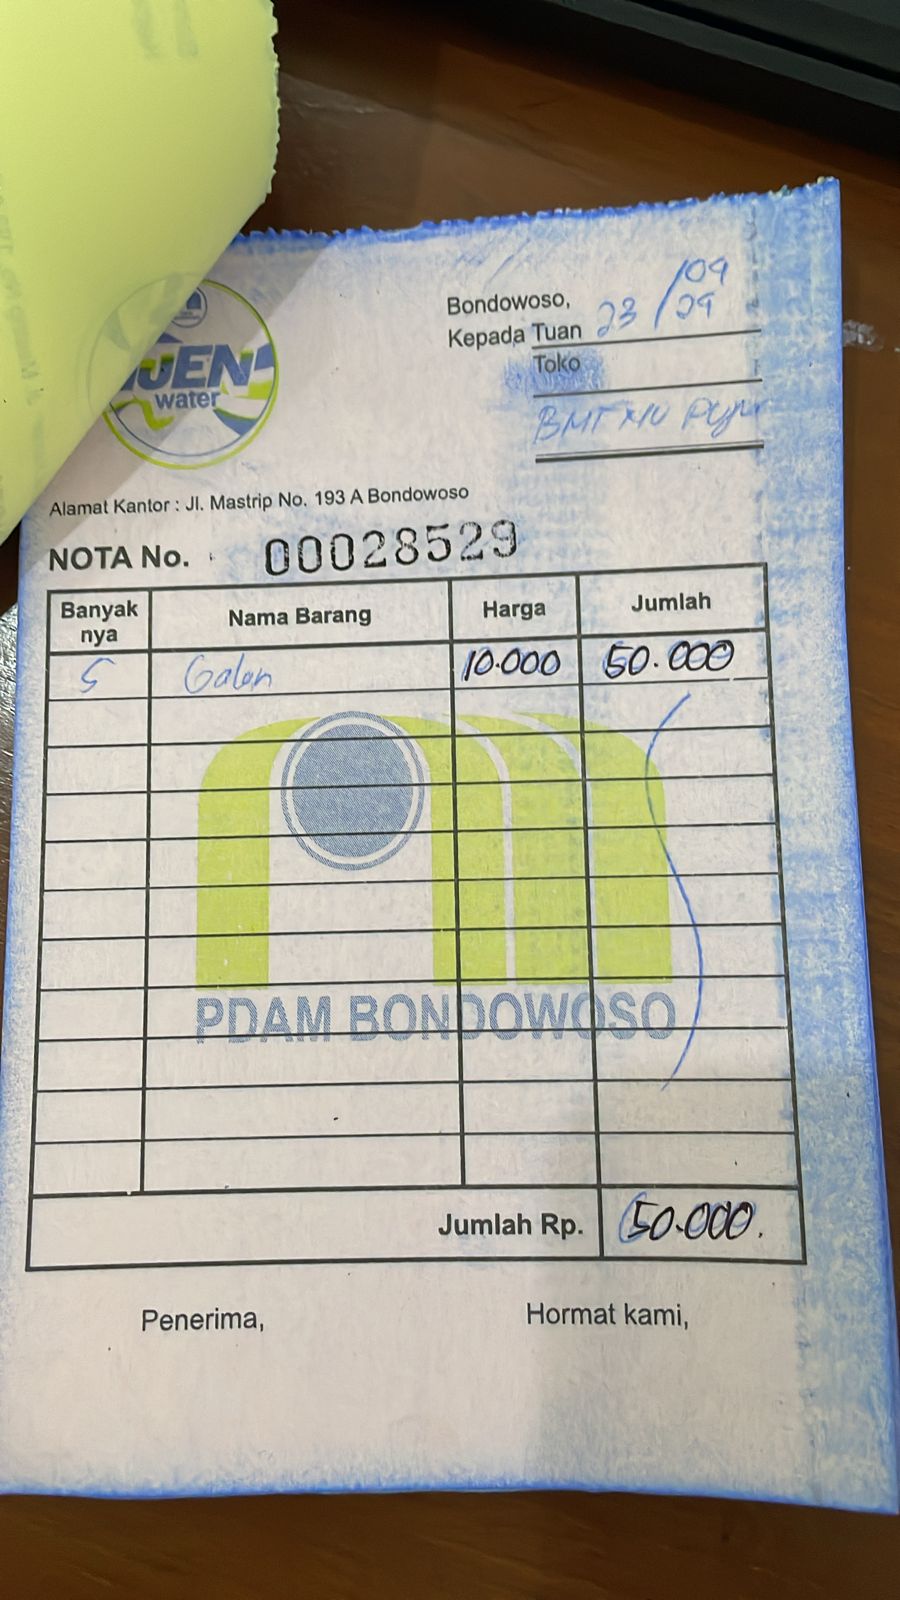 IJEN
water
Bondowoso, 23/09
Kepada Tuan 24
Toko
BMT NU
Alamat Kantor : Jl. Mastrip No. 193 A Bondowoso
NOTA No. 00028529
Banyak nya Nama Barang Harga Jumlah
5 Galon 10.000 50.000
PDAM BONDOWOSO
Jumlah Rp. 50.000.
Penerima, Hormat kami,